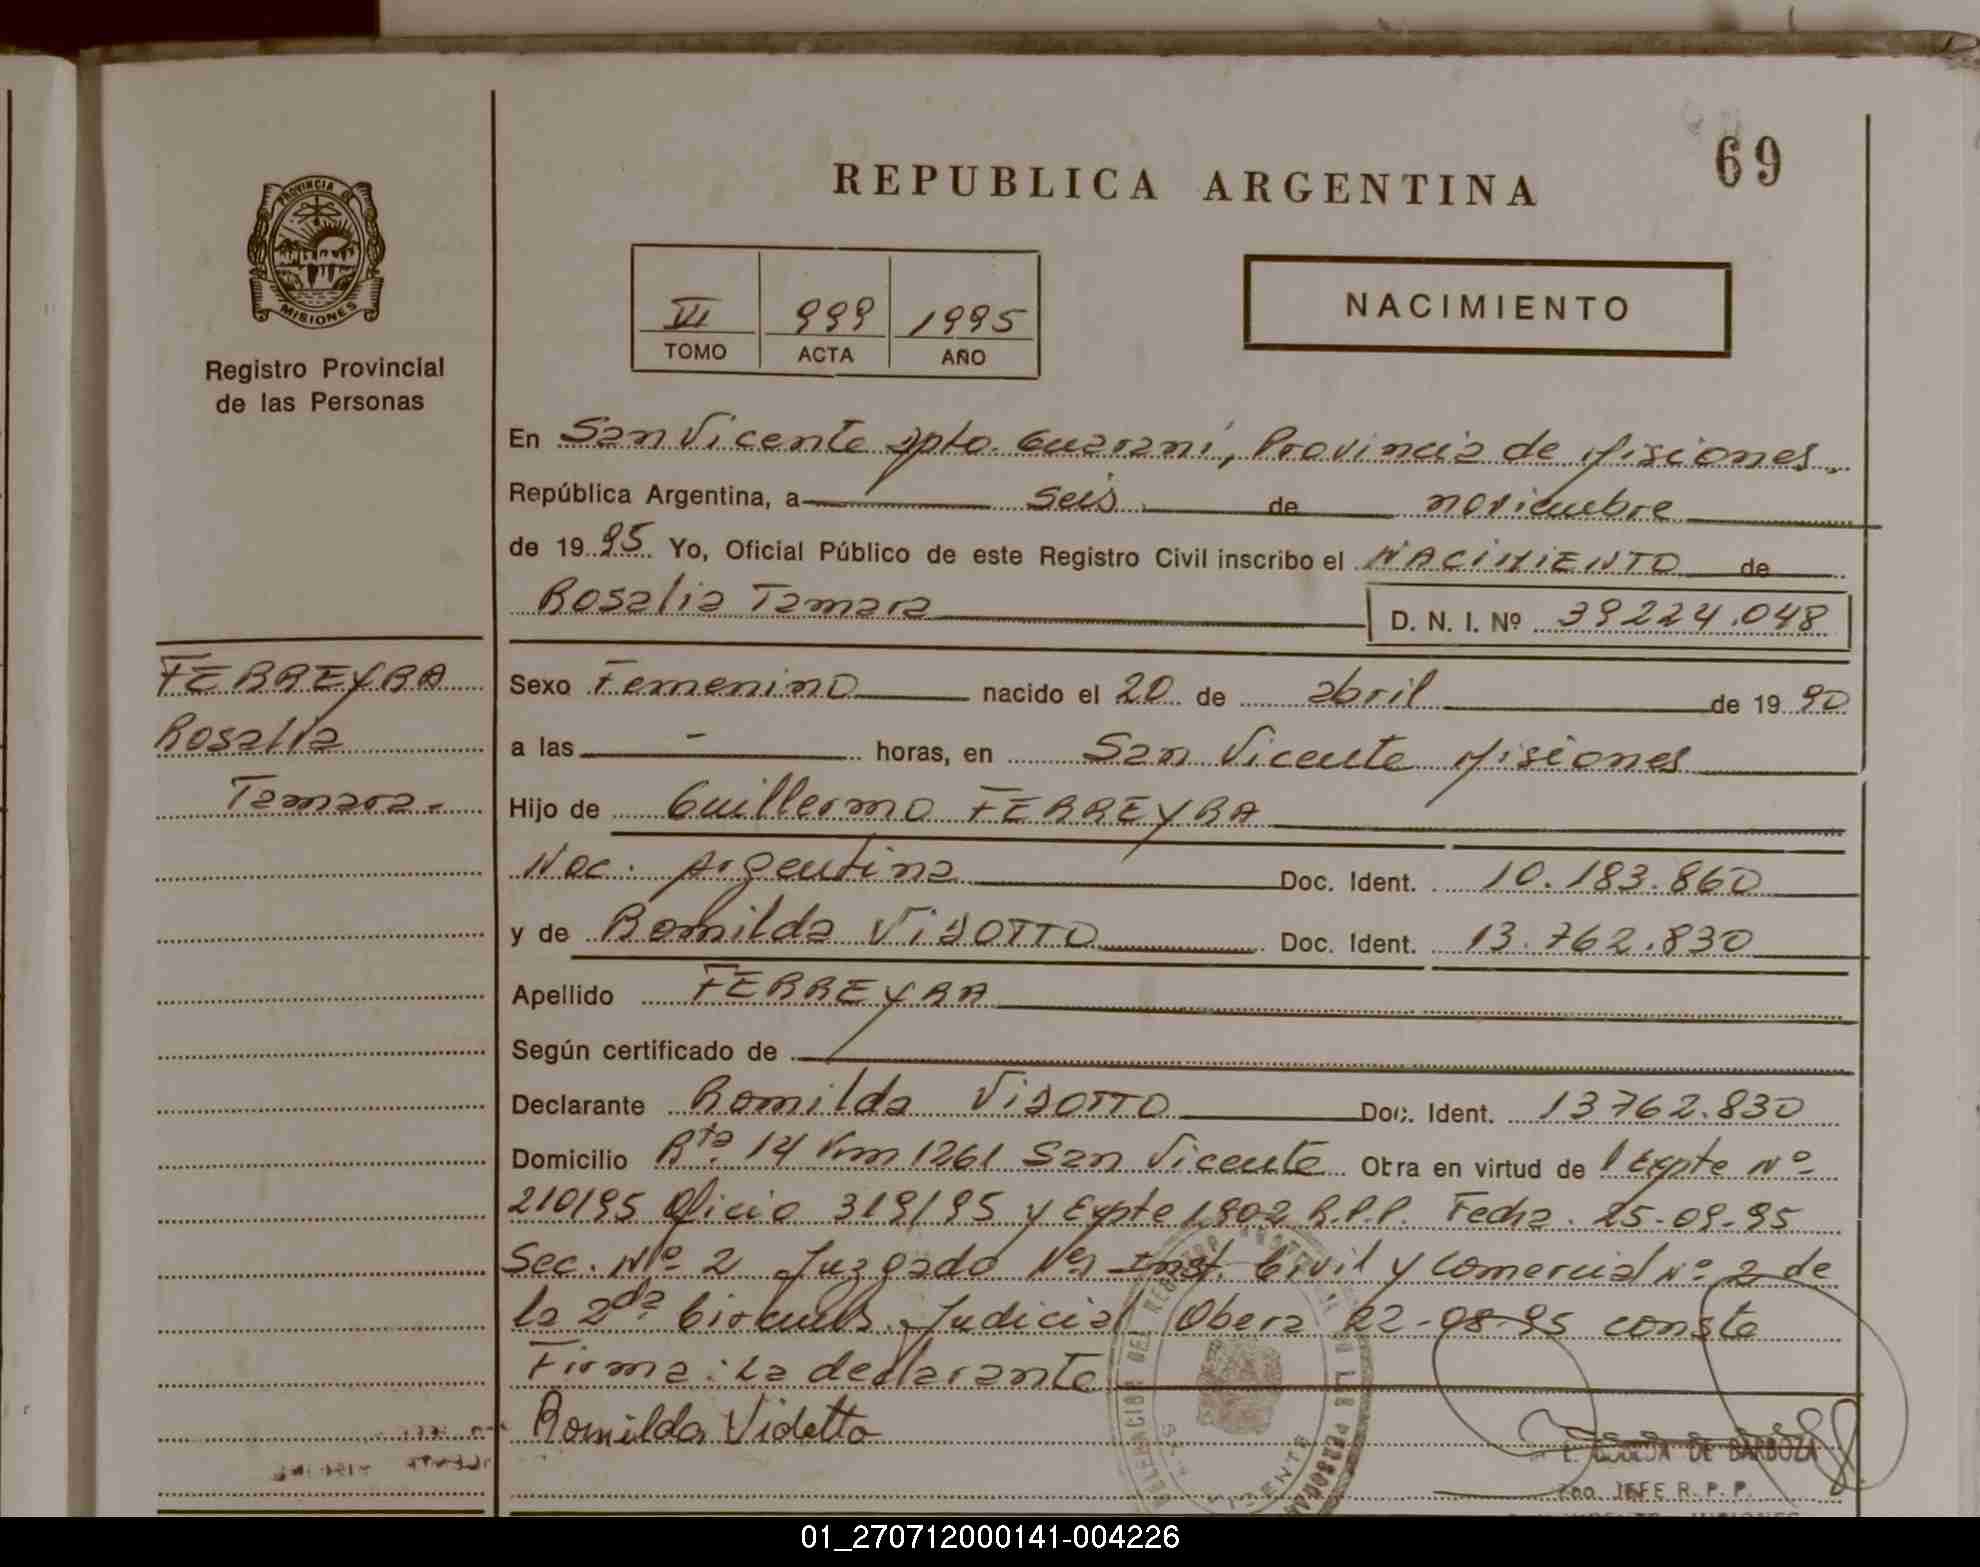 69
REPUBLICA ARGENTINA
PROVINCIA DE
MISIONES
Registro Provincial
de las Personas
VI 999 1995
TOMO ACTA AÑO
NACIMIENTO
En San Vicente Dpto. Guaraní, Provincia de Misiones.
República Argentina, a seis de noviembre
de 19 95 Yo, Oficial Público de este Registro Civil inscribo el NACIMIENTO de
Rosalia Tamara D. N. I. Nº 39224.048
FERREYRA
Rosalia
Tamara.
Sexo Femenino nacido el 20 de abril de 19 90
a las - horas, en San Vicente Misiones
Hijo de Guillermo FERREYRA
Nac. Argentina Doc. Ident. 10.183.860
y de Romilda VISOTTO Doc. Ident. 13.762.830
Apellido FERREYRA
Según certificado de
Declarante Romilda VISOTTO Doc. Ident. 13762.830
Domicilio Rta. 14 Km 1261 San Vicente Obra en virtud de Expte Nº
210/95 Oficio 319/95 y Expte 1902 R.P.P. Fecha. 25-09-95
Sec. Nº 2 Juzgado Inst. Civil y Comercial Nº 2 de
la 2da Judicial Obera 22-08-95 conste
Firma: La declarante
Romilda Vidotto
DE BARBOZA
JEFE R. P. P.
01_270712000141-004226